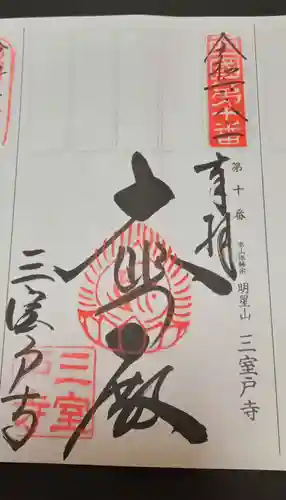 西国第十番
奉拝
第十番
本山修験宗
明星山
三室戸寺
大悲殿
三室戸寺
三室
戸寺